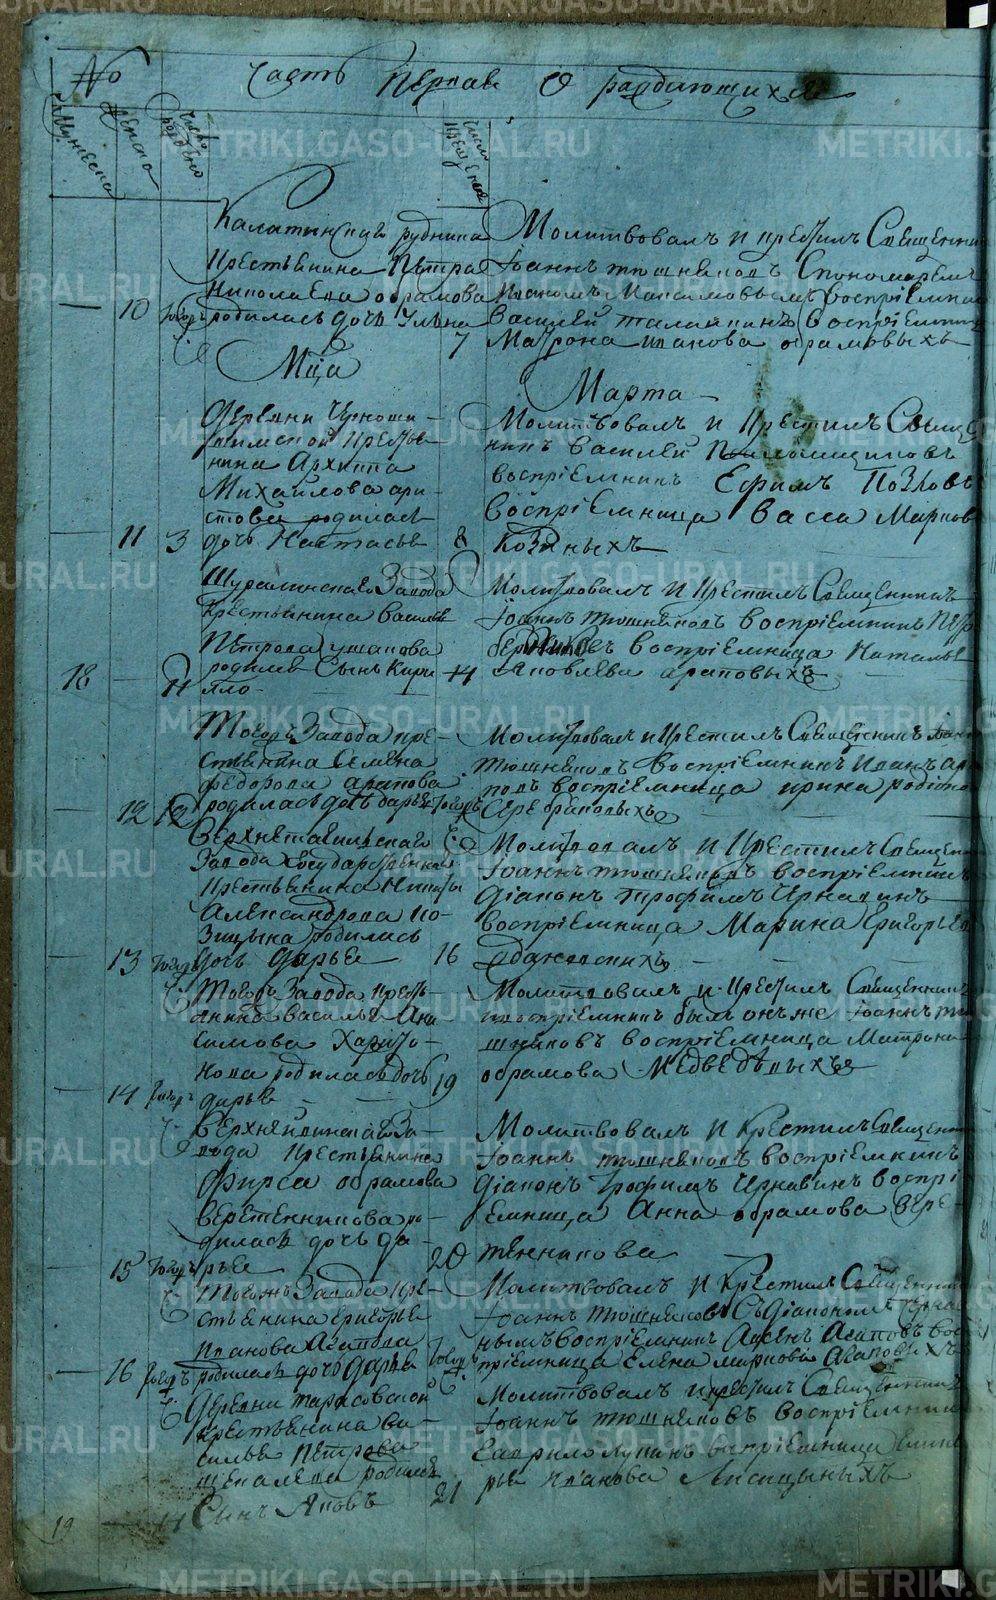 No Часть Первая О раждающихся
Мужеска
Женска
Число рождения
Число крещения
Калатинскаго рудника
крестьянина Петра
Николаева абрамова
10 родилась дочь Ульяна 7
Молитвовалъ и крестилъ Священникъ
Iоаннъ тюшняковъ Спономаремъ
Иваномъ Максимовымъ воспрiемникъ
Василей талапинъ воспрiемница
Матрона иванова абрамовыхъ
Мца Марта
Деревни
крестья-
нина Архипа
Михайлова ари-
стова родилась
11 3 дочь Настасья 8
Молитвовалъ и крестилъ Священ
никъ Василей
воспрiемникъ Ефимъ Козловъ
воспрiемница Васса Маркова
Козиныхъ
Шуралинскаго Завода
крестьянина Василья
Петрова ушакова
родился Сынъ Кири
18 11 ло 14
Молитвовалъ и крестилъ Священникъ
Iоаннъ тюшняковъ воспрiемникъ
воспрiемница Наталья
Яковлева араповыхъ
Тогожъ Завода кре-
стьянина Семена
федорова арапова
12 12 родилась дочь дарья тогожъ
Молитвовалъ и крестилъ Священникъ Iоаннъ
тюшняковъ воспрiемникъ Иванъ ара
повъ воспрiемница ирина родiонова
Серебряковыхъ
Верхнетагильскаго
Завода Государственнаго
крестьянина Никиты
Александрова ко-
зицына родилась
13 тогожъ дочь дарья 16
Молитвовалъ и крестилъ Священникъ
Iоаннъ тюшняковъ воспрiемникъ
дiаконъ трофимъ Чернавинъ
воспрiемница Марина Григорьева
Тогожъ Завода кресть-
янина Василья Ани
симова Харито-
нова родилась дочь 19
14 тогожъ дарья
Молитвовалъ и крестилъ Священникъ
и воспрiемникъ былъ онъ же Iоаннъ тю
шняковъ воспрiемница Матрона
абрамова Медведевыхъ
Верхнейвинскаго За-
вода крестьянина
Фирса абрамова
веретенникова ро-
дилась дочь да- 20
15 тогожъ рья
Молитвовалъ и крестилъ Священникъ
Iоаннъ тюшняковъ воспрiемникъ
дiаконъ трофимъ Чернавинъ воспрi
емница Анна абрамова Вере-
тенникова
Тогожъ Завода кре-
стьянина Григорья
иванова Агапова
16 тогожъ родилась дочь дарья тогожъ
Молитвовалъ и крестилъ Священникъ
Iоаннъ тюшняковъ Съ дiакономъ Черна
нымъ воспрiемникъ Агаповъ вос
прiемница Елена маркова Агаповыхъ
Деревни тарасовской
крестьянина Ва-
силья Петрова
родился
19 11 Сынъ Яковъ 21
Молитвовалъ и крестилъ Священникъ
Iоаннъ тюшняковъ воспрiемникъ
Гаврило Лупинъ воспрiемница
иванова Лисицыныхъ
METRIKI.GASO-URAL.RU